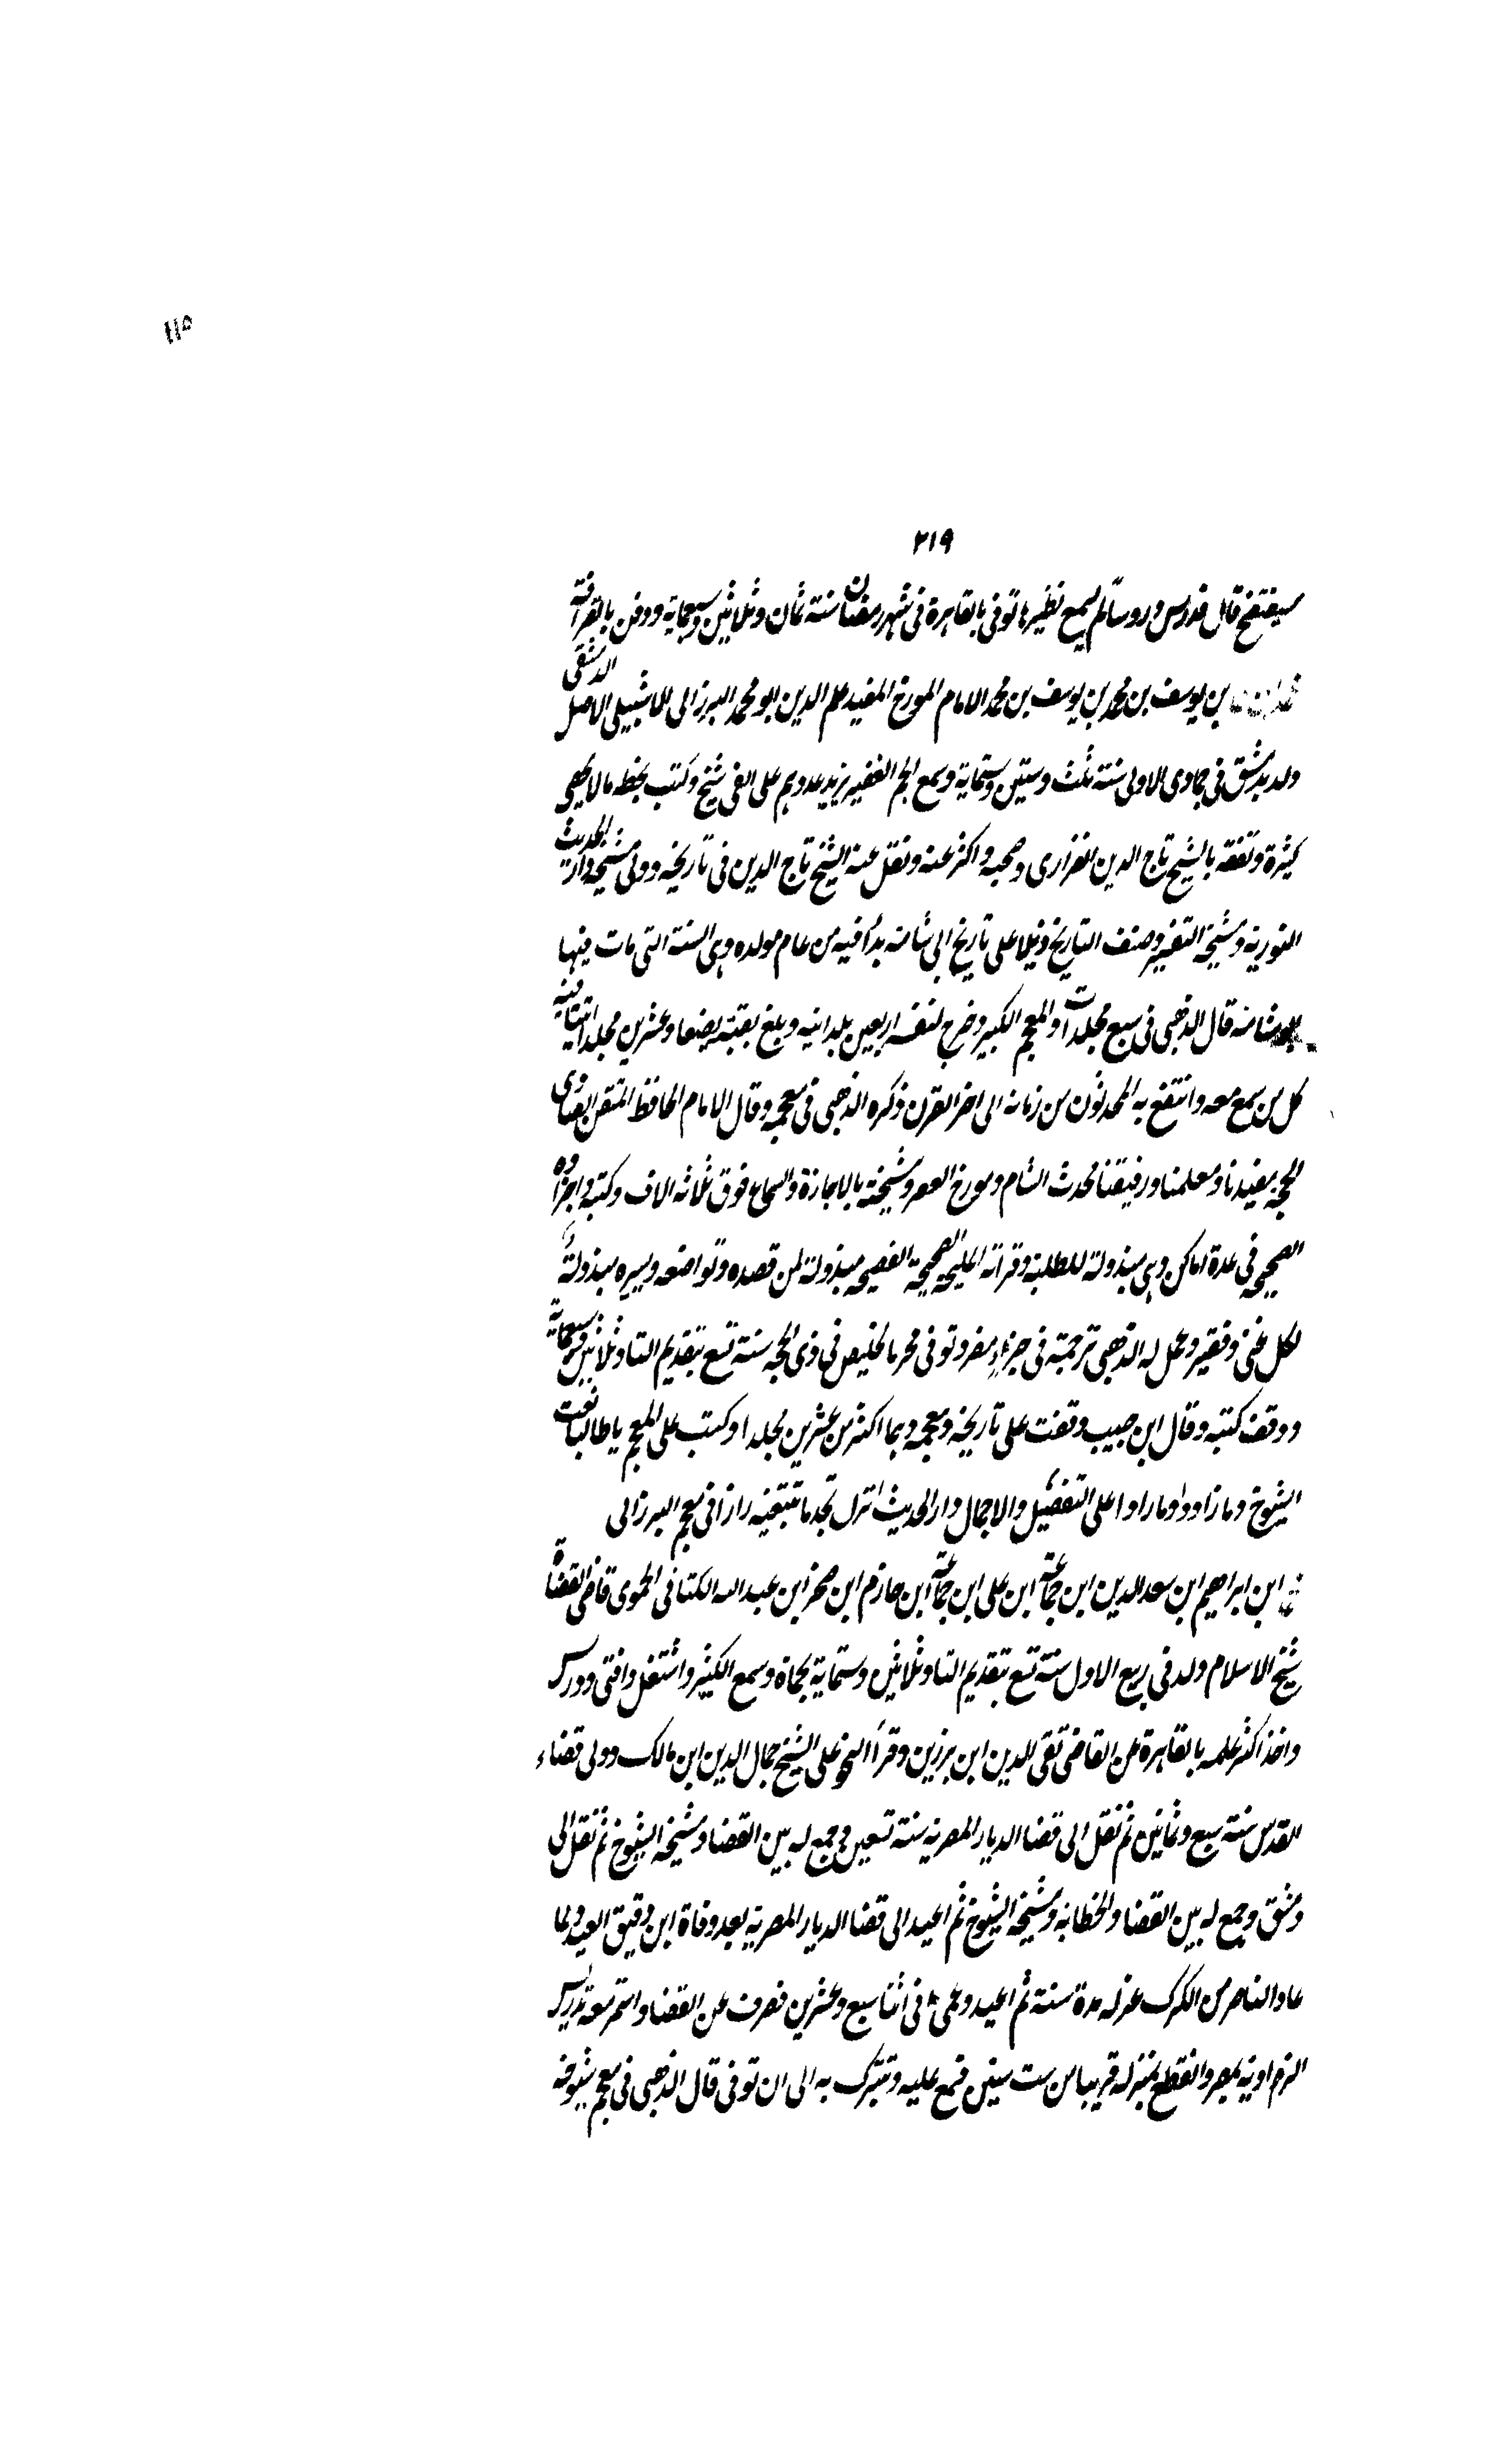 ١١٥
٢١٩
سيفتتح قال قدرس دروسا لم يسمع نظيرها توفى بالقاهرة فى شهر رمضان سنة ثمان وثلاثين وسبعماية ودفن بالقرافة
بن يوسف بن محمد بن يوسف بن محمد الامام المورخ المفيد علم الدين ابو محمد البرزالى الاشبيلى الاصل الدمشقى
ولد بدمشق فى جمادى الاولى سنة ثلث وستين وستماية وسمع الجم الغفير يزيد عددهم على الفى شيخ وكتب بخطه مالا يحصى
كثرة وتفقه بالشيخ تاج الدين الفزارى وصحبه واكثر عنه ونقل عنه الشيخ تاج الدين فى تاريخه وولى مشيخة دار الحديث
النورية ومشيخة التفسير وصنف التاريخ ذيلا على تاريخ ابى شامة بدأ فيه من عام مولده وهى السنة التى مات فيها
ابو شامة قال الذهبى فى سبع مجلدات والمعجم الكبير وخرج لنفسه اربعين بلدانية وبلغ بقبته بضعا وعشرين مجلدا اثبت فيه
كل من سمع معه وانتفع به المحدثون من زمانه الى اخر القرن ذكره الذهبى فى معجمه وقال الامام الحافظ المتقن الصادق
الحجة مفيدنا ومعلمنا ورفيقنا محدث الشام ومورخ العصر ومشيخته بالاجازة والسماع فوق ثلاثة الاف وكتبه واجزاؤه
الصحيحة فى عدة اماكن وهى مبذولة للطلبة وقراته المليحة الصحيحة الفصيحة مبذولة لمن قصده وتواضعه وبسره مبذولة
لكل غنى وفقير وعمل له الذهبى ترجمة فى جزء مفرد توفى محرما بخليص فى ذى الحجة سنة تسع بتقديم التا وثلاثين وسبعماية
ووقف كتبه وقال ابن حبيب وقفت على تاريخه ومعجمه وهما اكثر من عشرين مجلدا وكتب على المعجم يا طالبا نعت
الشيوخ وما زاووا وما راوا على التفصيل والاجمال دار الحديث انزل تجد ما تبتغيه رازا فى معجم البرزالى
ابن ابراهيم ابن سعد الدين ابن جماعة ابن على ابن جماعة ابن حازم ابن صخر ابن عبد الله الكنانى الحموى قاضى القضاة
شيخ الاسلام ولد فى ربيع الاول سنة تسع بتقديم التا وثلاثين وستماية بحماة وسمع الكثير واشتغل وافتى ودرس
واخذ اكثر علمه بالقاهرة عن القاضى تقى الدين ابن برزين وقرأ النحو على الشيخ جمال الدين ابن مالك وولى قضاء
القدس سنة سبع وثمانين ثم نقل الى قضا الديار المصرية سنة تسعين وجمع له بين القضا ومشيخة الشيوخ ثم نقل الى
دمشق وجمع له بين القضا والخطابة ومشيخة الشيوخ ثم اعيد الى قضا الديار المصرية بعد وفاة ابن دقيق العيد ولما
عاد الناصر من الكرك عزله مدة سنة ثم اعيد وعمى فى اثنا سبع وعشرين فصرف عن القضا واستمر معه تدريس
الزاوية بمصر وانقطع بمنزله قريبا من ست سنين فسمع عليه وتبرك به الى ان توفى قال الذهبى فى معجم شيوخه